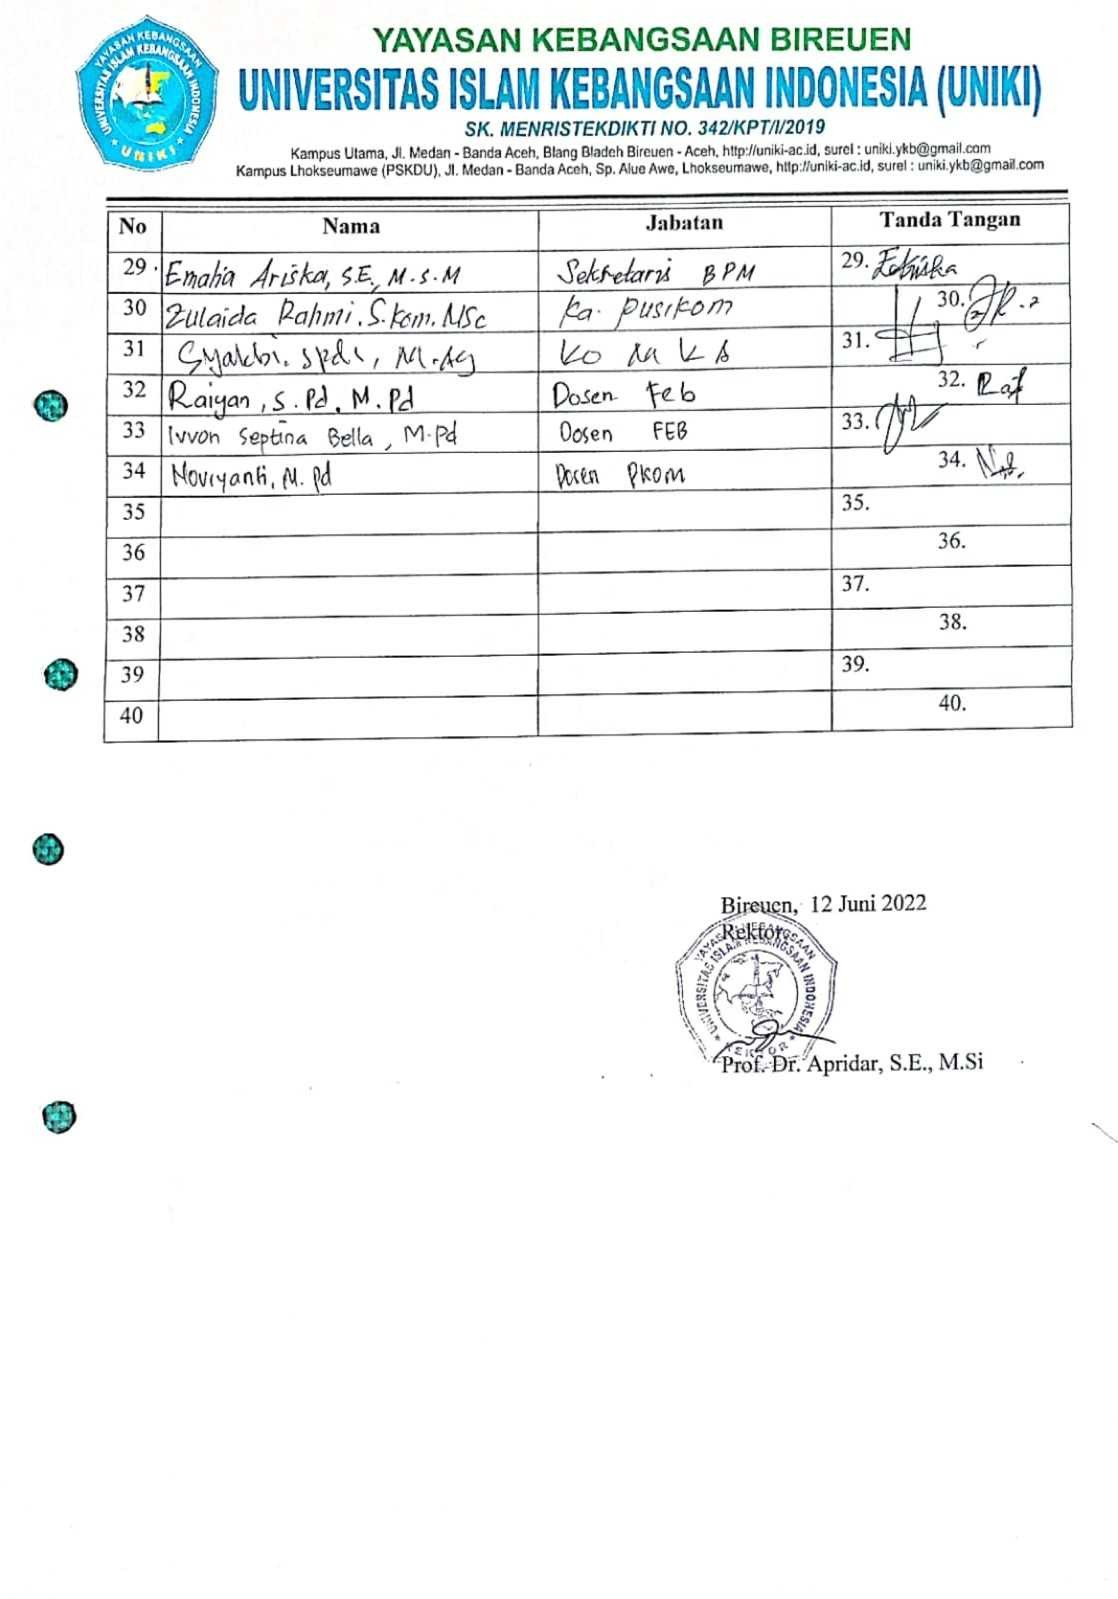 YAYASAN KEBANGSAAN BIREUEN
UNIVERSITAS ISLAM KEBANGSAAN INDONESIA (UNIKI)
SK. MENRISTEKDIKTI NO. 342/KPT/I/2019
Kampus Utama, Jl. Medan - Banda Aceh, Blang Bladeh Bireuen - Aceh, http://uniki-ac.id, surel : uniki.ykb@gmail.com
Kampus Lhokseumawe (PSKDU), Jl. Medan - Banda Aceh, Sp. Alue Awe, Lhokseumawe, http://uniki-ac.id, surel : uniki.ykb@gmail.com
YAYASAN KEBANGSAAN
UNIVERSITAS ISLAM KEBANGSAAN INDONESIA
UNIKI
No Nama Jabatan Tanda Tangan
29. Emalia Ariska, S.E., M.S.M Sekretaris BPM 29.
30 Zulaida Rahmi. S.Kom. MSc Ka. Pusikom 30.
31 Syakbi. Spdi, M.Ag 31.
32 Raiyan, S.Pd, M.Pd Dosen Feb 32. Raf
33 Ivvon Septina Bella, M.Pd Dosen FEB 33.
34 Noviyanti, M.Pd Dosen PKOM 34.
35 35.
36 36.
37 37.
38 38.
39 39.
40 40.
Bireuen, 12 Juni 2022
Rektor,
YAYASAN KEBANGSAAN
UNIVERSITAS ISLAM KEBANGSAAN INDONESIA
REKTOR
Prof. Dr. Apridar, S.E., M.Si